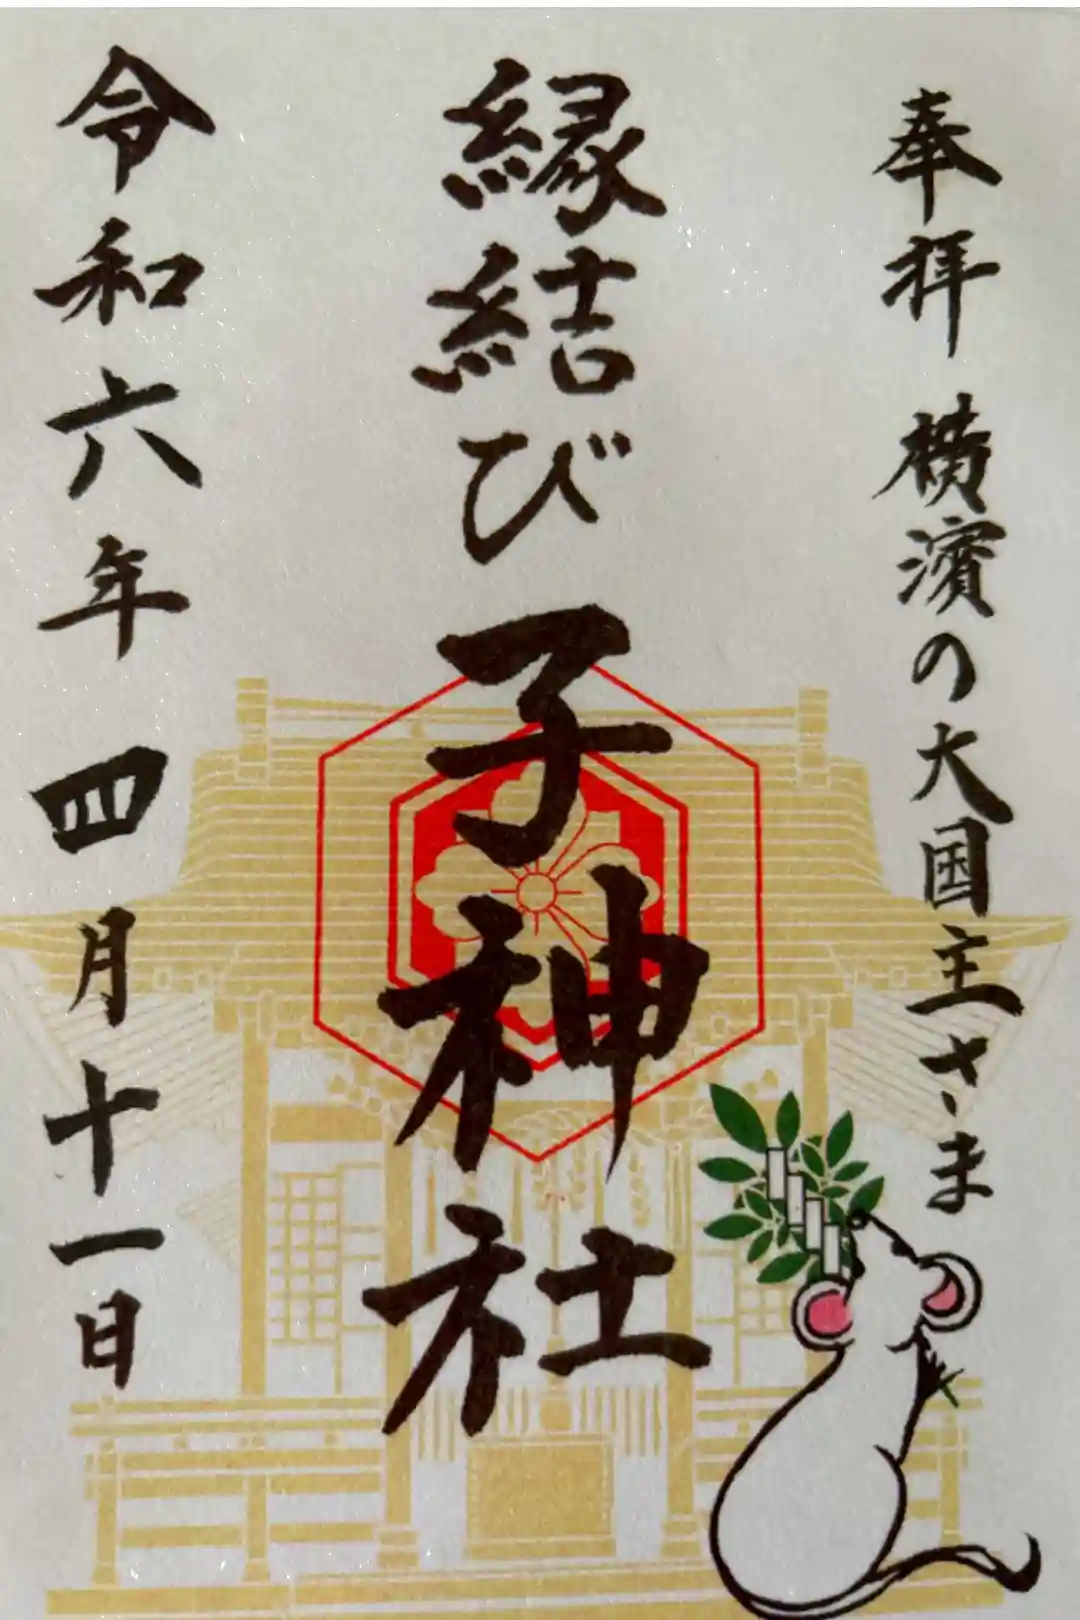 奉拝 横濱の大国主さゝま
縁結び子神社
令和六年四月十一日